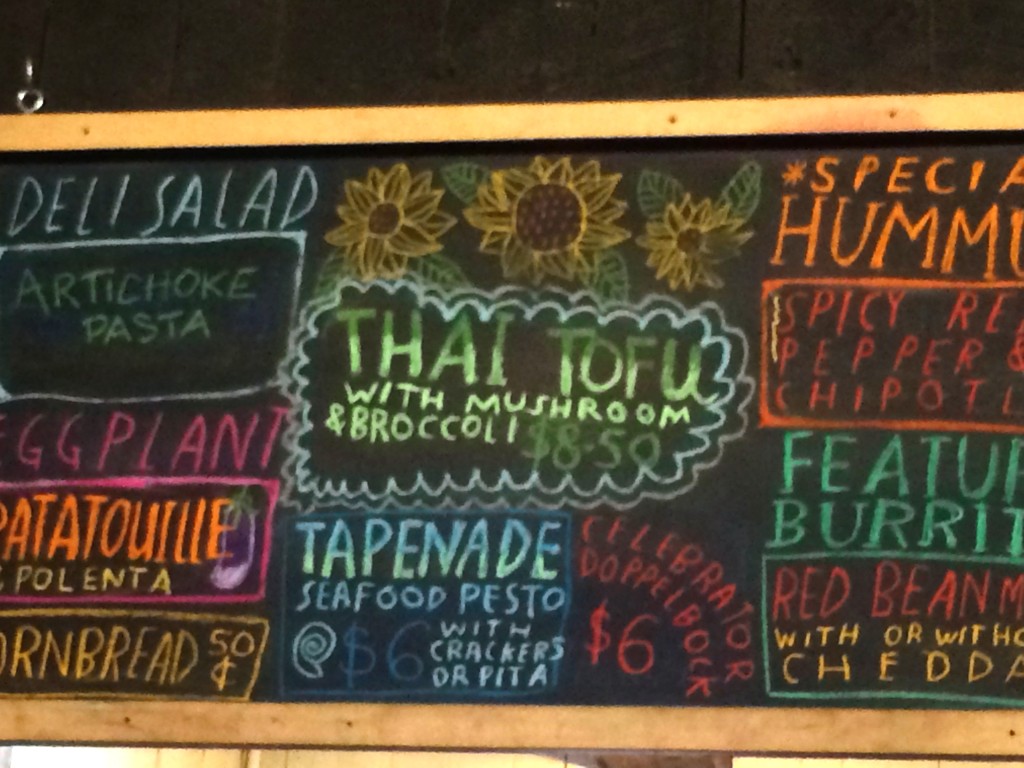 DELI SALAD
ARTICHOKE
PASTA
EGGPLANT
PATATOUILLE
& POLENTA
ORNBREAD 50¢
THAI TOFU
WITH MUSHROOM
& BROCCOLI $8.50
TAPENADE
SEAFOOD PESTO
@ $6 WITH
CRACKERS
OR PITA
CELEBRATOR
DOPPELBOCK
$6
*SPECIA
HUMMU
SPICY RE
PEPPER &
CHIPOTL
FEATUR
BURRIT
RED BEAN M
WITH OR WITHO
CHEDDA